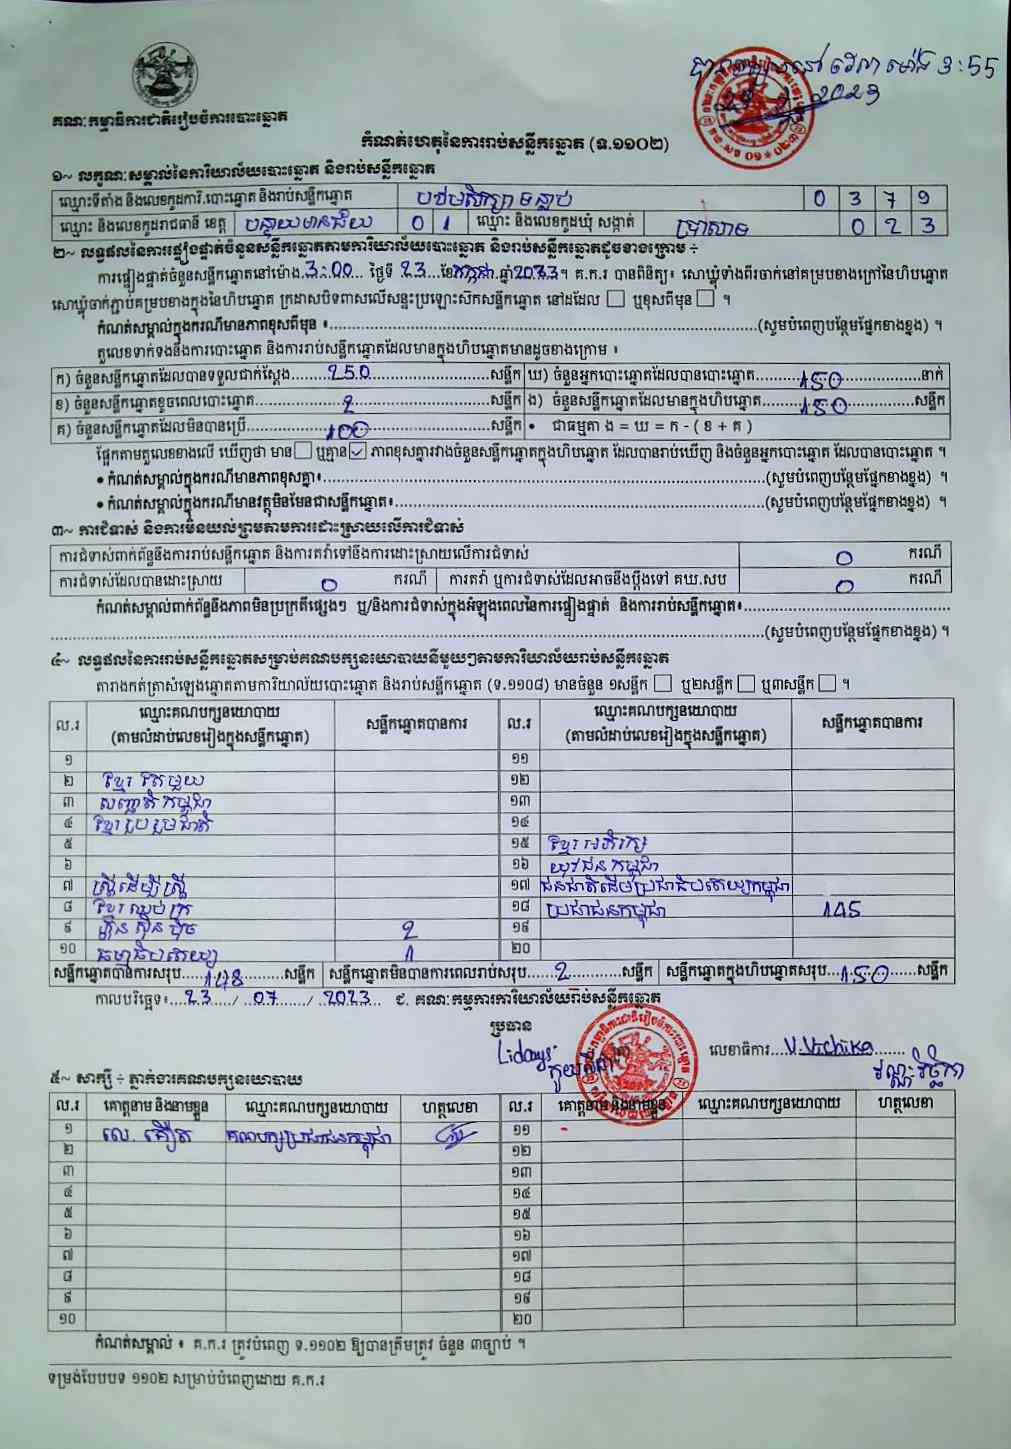 បានបិទផ្សាយនៅ វេលា ម៉ោង 3:55
2023
គណៈកម្មាធិការជាតិរៀបចំការបោះឆ្នោត
កំណត់ហេតុនៃការរាប់សន្លឹកឆ្នោត (ទ.១១០២)
១~ លក្ខណៈសម្គាល់នៃការិយាល័យបោះឆ្នោត និងរាប់សន្លឹកឆ្នោត
ឈ្មោះទីតាំង និងលេខកូដការិ.បោះឆ្នោត និងរាប់សន្លឹកឆ្នោត បឋមសិក្សា 0 3 7 9
ឈ្មោះ និងលេខកូដរាជធានី ខេត្ត បន្ទាយមានជ័យ 0 1 ឈ្មោះ និងលេខកូដឃុំ សង្កាត់ ប្រាសាទ 0 2 3
២~ លទ្ធផលនៃការផ្ទៀងផ្ទាត់ចំនួនសន្លឹកឆ្នោតតាមការិយាល័យបោះឆ្នោត និងរាប់សន្លឹកឆ្នោតដូចខាងក្រោម ÷
ការផ្ទៀងផ្ទាត់ចំនួនសន្លឹកឆ្នោតនៅម៉ោង 3:00 ថ្ងៃទី 23 ខែកក្កដា ឆ្នាំ2023។ គ.ក.រ បានពិនិត្យ៖ សោឃ្លុំទាំងពីរចាក់នៅគម្របខាងក្រៅនៃហិបឆ្នោត
សោឃ្លុំចាក់ភ្ជាប់គម្របខាងក្នុងនៃហិបឆ្នោត ក្រដាសបិទពាសលើសន្ទះប្រឡោះស៊កសន្លឹកឆ្នោត នៅដដែល ☐ ឬខុសពីមុន ☐ ។
កំណត់សម្គាល់ក្នុងករណីមានភាពខុសពីមុន ៖ (សូមបំពេញបន្ថែមផ្នែកខាងខ្នង) ។
តួលេខទាក់ទងនឹងការបោះឆ្នោត និងការរាប់សន្លឹកឆ្នោតដែលមានក្នុងហិបឆ្នោតមានដូចខាងក្រោម ៖
ក) ចំនួនសន្លឹកឆ្នោតដែលបានទទួលជាក់ស្តែង 250 សន្លឹក ឃ) ចំនួនអ្នកបោះឆ្នោតដែលបានបោះឆ្នោត 150 នាក់
ខ) ចំនួនសន្លឹកឆ្នោតខូចពេលបោះឆ្នោត 2 សន្លឹក ង) ចំនួនសន្លឹកឆ្នោតដែលមានក្នុងហិបឆ្នោត 150 សន្លឹក
គ) ចំនួនសន្លឹកឆ្នោតដែលមិនបានប្រើ 100 សន្លឹក • ជាធម្មតា ង = ឃ = ក - ( ខ + គ )
ផ្អែកតាមតួលេខខាងលើ ឃើញថា មាន ☐ ឬគ្មាន ☑ ភាពខុសគ្នារវាងចំនួនសន្លឹកឆ្នោតក្នុងហិបឆ្នោត ដែលបានរាប់ឃើញ និងចំនួនអ្នកបោះឆ្នោត ដែលបានបោះឆ្នោត ។
• កំណត់សម្គាល់ក្នុងករណីមានភាពខុសគ្នា៖ (សូមបំពេញបន្ថែមផ្នែកខាងខ្នង) ។
• កំណត់សម្គាល់ក្នុងករណីមានវត្ថុមិនមែនជាសន្លឹកឆ្នោត៖ (សូមបំពេញបន្ថែមផ្នែកខាងខ្នង) ។
៣~ ការជំទាស់ និងការមិនយល់ព្រមតាមការដោះស្រាយលើការជំទាស់
ការជំទាស់ពាក់ព័ន្ធនឹងការរាប់សន្លឹកឆ្នោត និងការតវ៉ាទៅនឹងការដោះស្រាយលើការជំទាស់ 0 ករណី
ការជំទាស់ដែលបានដោះស្រាយ 0 ករណី ការតវ៉ា ឬការជំទាស់ដែលអាចនឹងប្តឹងទៅ គឃ.សប 0 ករណី
កំណត់សម្គាល់ពាក់ព័ន្ធនឹងភាពមិនប្រក្រតីផ្សេងៗ ឬ/និងការជំទាស់ក្នុងអំឡុងពេលនៃការផ្ទៀងផ្ទាត់ និងការរាប់សន្លឹកឆ្នោត៖
(សូមបំពេញបន្ថែមផ្នែកខាងខ្នង) ។
៤~ លទ្ធផលនៃការរាប់សន្លឹកឆ្នោតសម្រាប់គណបក្សនយោបាយនីមួយៗតាមការិយាល័យរាប់សន្លឹកឆ្នោត
តារាងកត់ត្រាសំឡេងឆ្នោតតាមការិយាល័យបោះឆ្នោត និងរាប់សន្លឹកឆ្នោត (ទ.១១០៨) មានចំនួន ១សន្លឹក ☐ ឬ២សន្លឹក ☐ ឬ៣សន្លឹក ☐ ។
ល.រ ឈ្មោះគណបក្សនយោបាយ (តាមលំដាប់លេខរៀងក្នុងសន្លឹកឆ្នោត) សន្លឹកឆ្នោតបានការ ល.រ ឈ្មោះគណបក្សនយោបាយ (តាមលំដាប់លេខរៀងក្នុងសន្លឹកឆ្នោត) សន្លឹកឆ្នោតបានការ
១ ១១
២ ខ្មែរ តែមួយ ១២
៣ សញ្ជាតិ កម្ពុជា ១៣
៤ ខ្មែរ រួបរួមជាតិ ១៤
៥ ១៥ ខ្មែរ អភិរក្ស
៦ ១៦ យុវជន កម្ពុជា
៧ ស្ត្រីដើម្បីស្ត្រី ១៧ ជនជាតិដើមប្រជាធិបតេយ្យកម្ពុជា
៨ ខ្មែរ ឈប់ក្រ ១៨ ប្រជាជនកម្ពុជា 145
៩ ហ្វ៊ុនស៊ិនប៉ិច 2 ១៩
១០ ធម្មាធិបតេយ្យ 1 ២០
សន្លឹកឆ្នោតបានការសរុប 148 សន្លឹក សន្លឹកឆ្នោតមិនបានការពេលរាប់សរុប 2 សន្លឹក សន្លឹកឆ្នោតក្នុងហិបឆ្នោតសរុប 150 សន្លឹក
កាលបរិច្ឆេទ៖ 23 / 07 / 2023 ជ. គណៈកម្មការការិយាល័យរាប់សន្លឹកឆ្នោត
ប្រធាន
Lidays លេខាធិការ V.Vichika
វណ្ណៈ វិច្ឆិកា
៥~ សាក្សី ÷ ភ្នាក់ងារគណបក្សនយោបាយ
ល.រ គោត្តនាម និងនាមខ្លួន ឈ្មោះគណបក្សនយោបាយ ហត្ថលេខា ល.រ គោត្តនាម និងនាមខ្លួន ឈ្មោះគណបក្សនយោបាយ ហត្ថលេខា
១ លេ. គឿត គណបក្សប្រជាជនកម្ពុជា ១១
២ ១២
៣ ១៣
៤ ១៤
៥ ១៥
៦ ១៦
៧ ១៧
៨ ១៨
៩ ១៩
១០ ២០
កំណត់សម្គាល់ ៖ គ.ក.រ ត្រូវបំពេញ ទ.១១០២ ឱ្យបានត្រឹមត្រូវ ចំនួន ៣ច្បាប់ ។
ទម្រង់បែបបទ ១១០២ សម្រាប់បំពេញដោយ គ.ក.រ